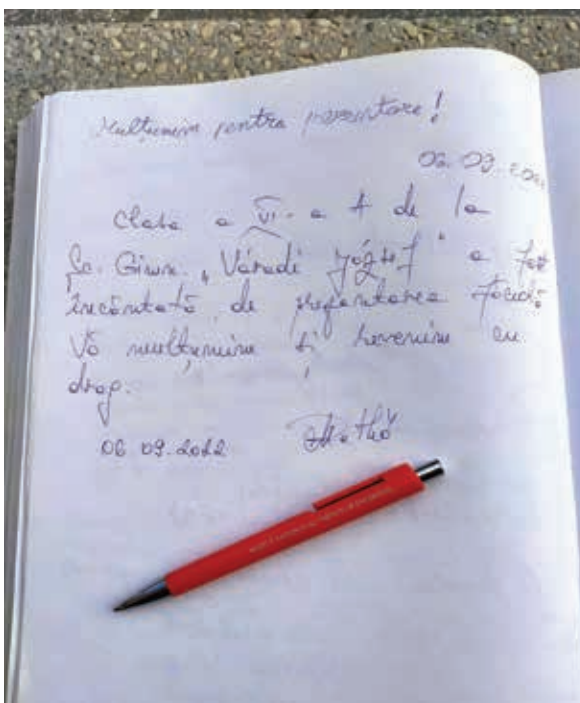 Mulțumim pentru prezentare!
06.09.2022
Clasa a VI-a A de la
Șc. Gimn. „Váradi József” a fost
încântată de prezentarea făcută
Vă mulțumim și revenim cu
drag.
06.09.2022